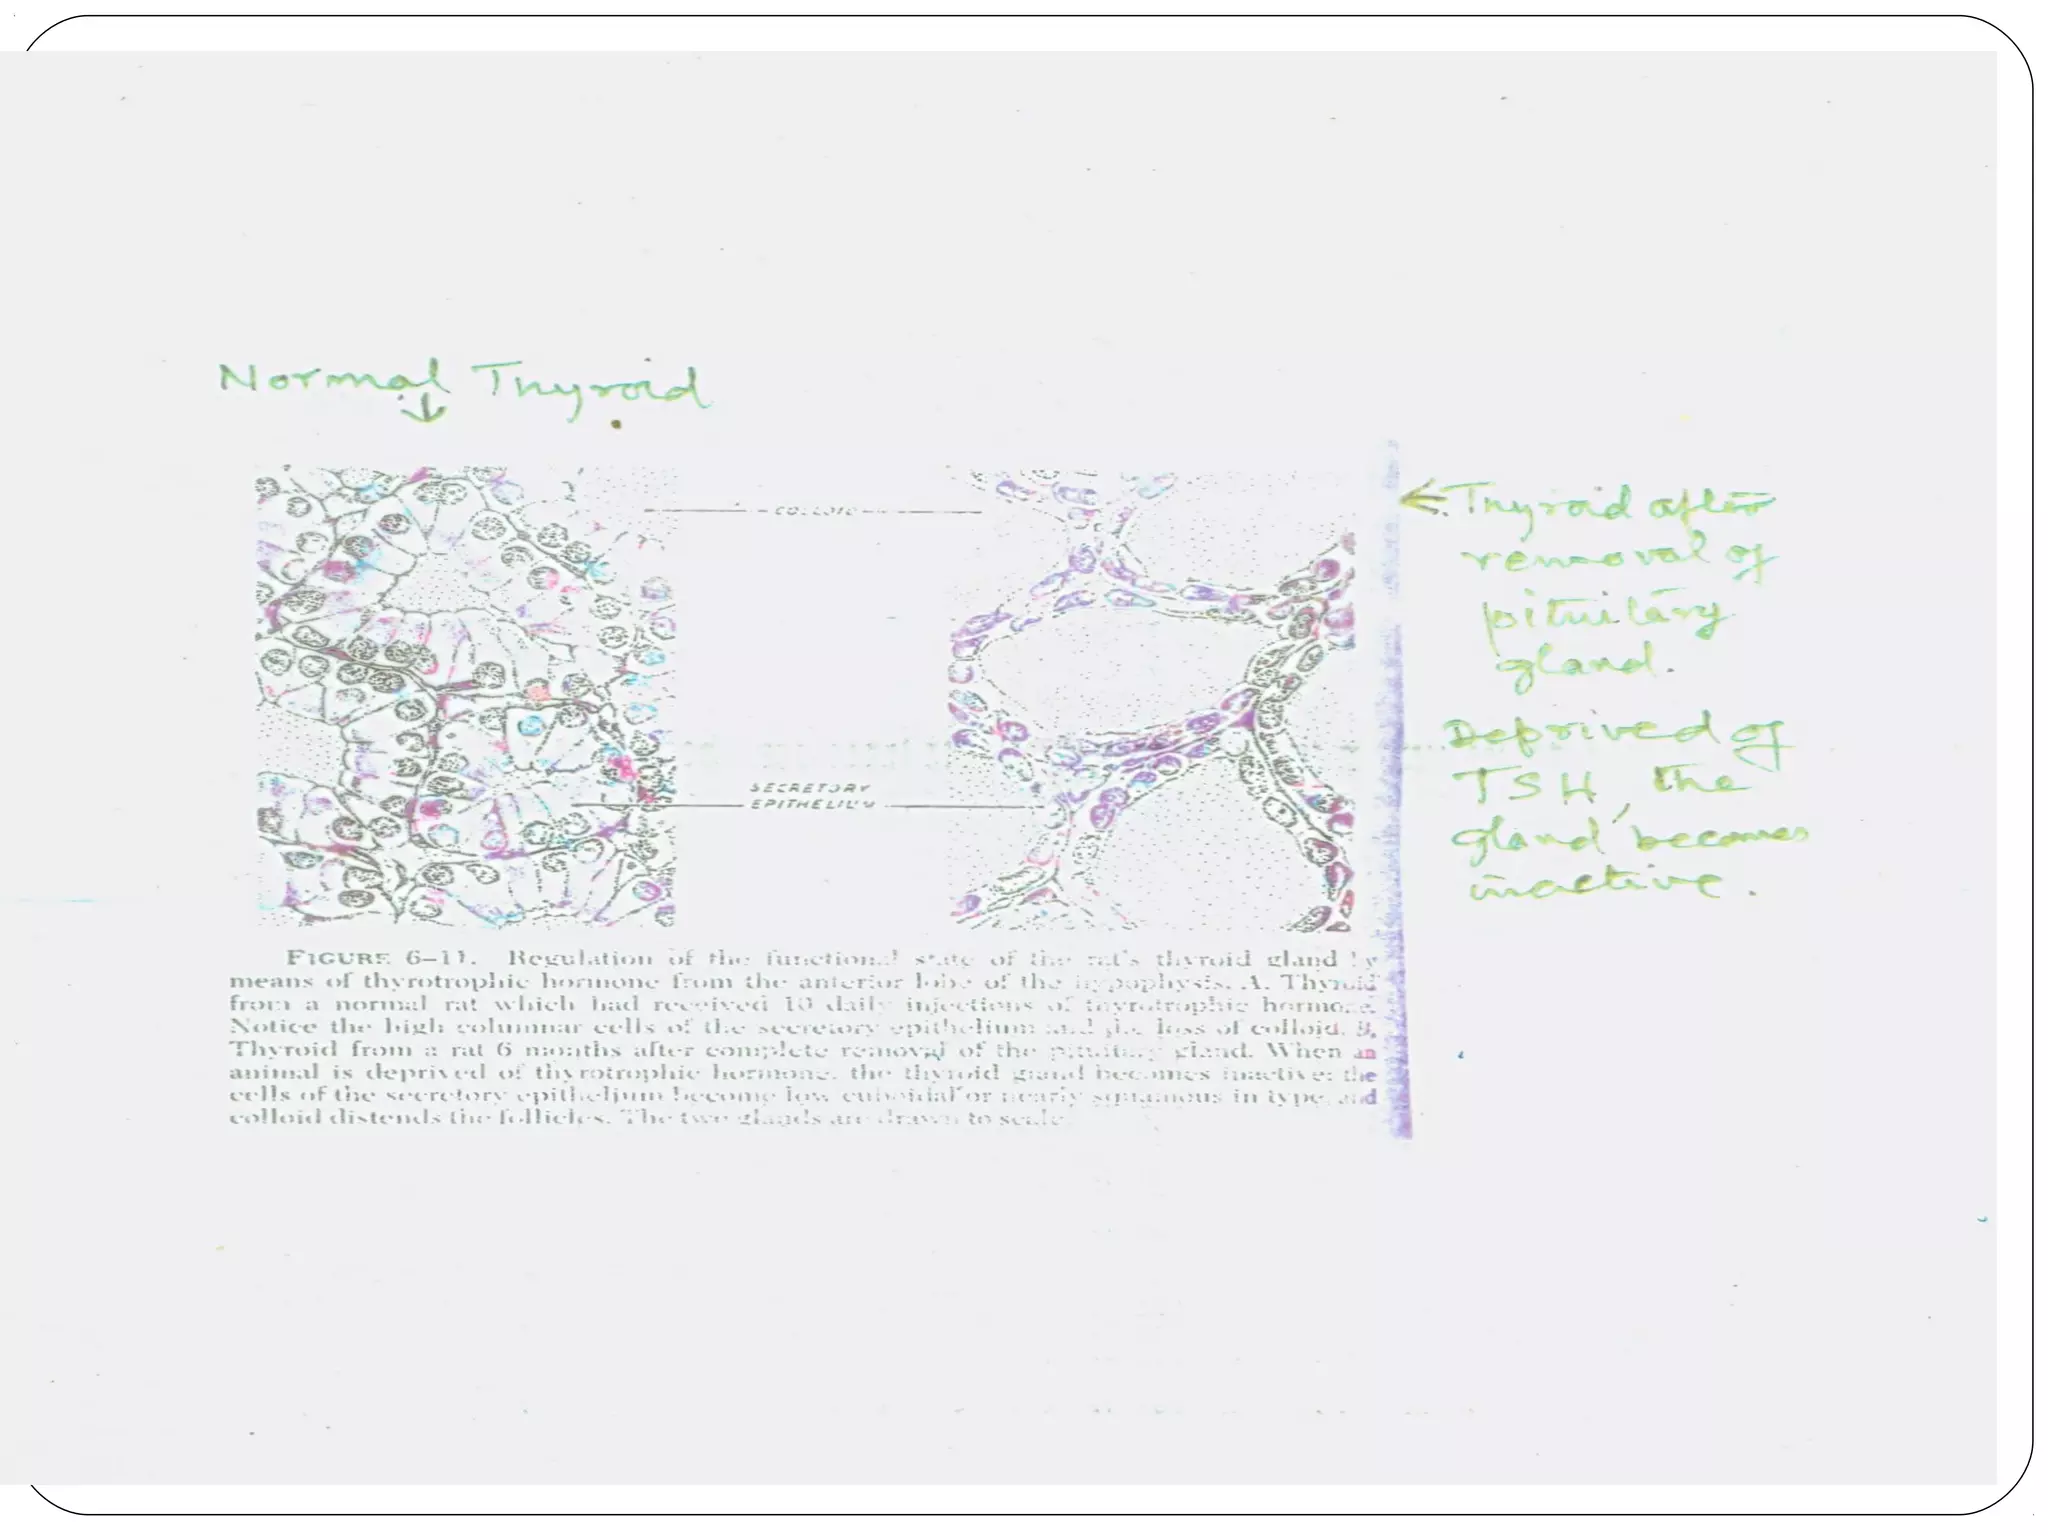 Normal Thyroid
COLLOID
SECRETORY
EPITHELIUM
Thyroid after
removal of
pituitary
gland.
Deprived of
TSH, the
gland becomes
inactive.
FIGURE 6–11. Regulation of the functional state of the rat's thyroid gland by
means of thyrotrophic hormone from the anterior lobe of the hypophysis. A. Thyroid
from a normal rat which had received 10 daily injections of thyrotrophic hormone.
Notice the high columnar cells of the secretory epithelium and the loss of colloid. B,
Thyroid from a rat 6 months after complete removal of the pituitary gland. When an
animal is deprived of thyrotrophic hormone, the thyroid gland becomes inactive; the
cells of the secretory epithelium become low cuboidal or nearly squamous in type, and
colloid distends the follicles. The two glands are drawn to scale.